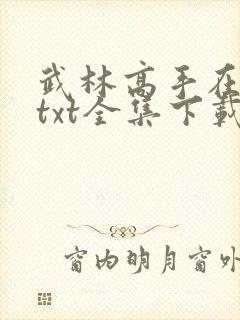 武林高手在
txt全集下载
窗内明月窗外